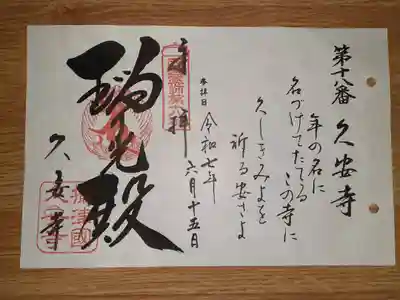 第十八番 久安寺
年の名に
名づけてたてる
この寺に
久しきみよを
祈る安さよ
参拝日 令和七年
六月十五日
奉拝
瑠光殿
久安寺
摂津國